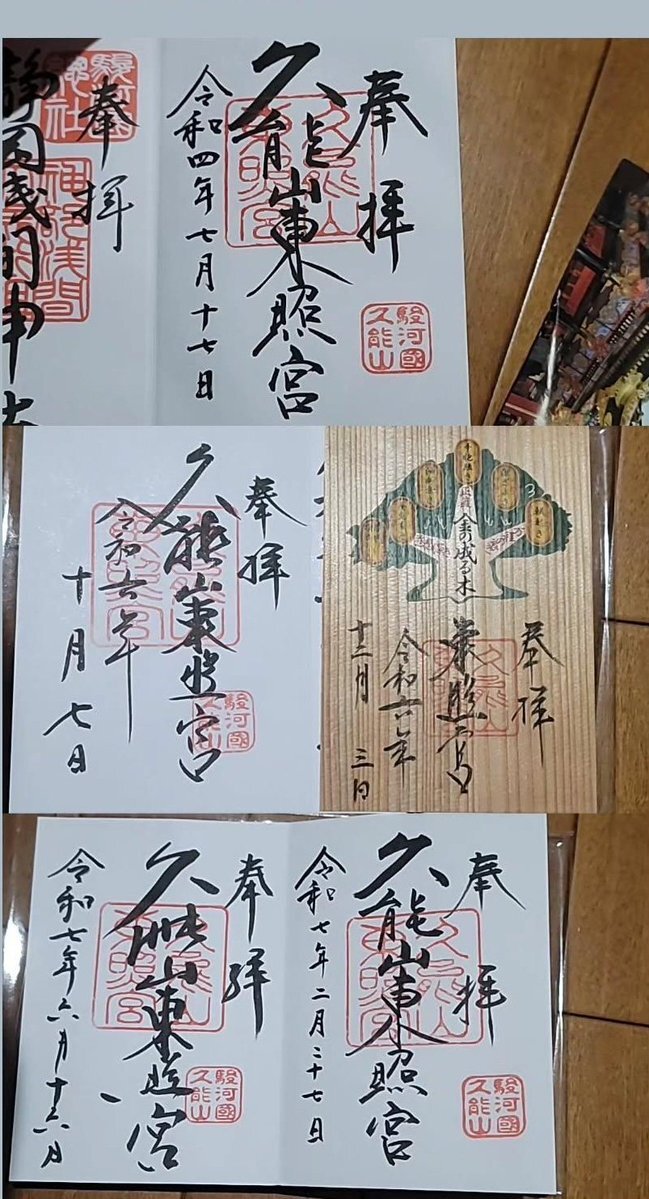 奉拝
久能山東照宮
令和四年七月十七日
駿河國
久能山
奉拝
静岡浅間神
奉拝
東照宮
令和六年
十二月三日
金の成る木
奉拝
久能山東照宮
令和六年
十月七日
駿河國
久能山
奉拝
久能山東照宮
令和七年二月二十七日
駿河國
久能山
奉拝
久能山東照宮
令和七年六月十六日
駿河國
久能山